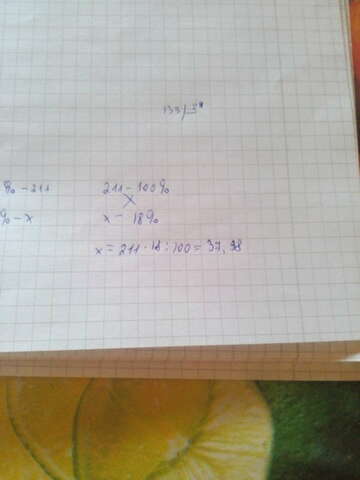 % - 211
% - x
211 - 100%
x - 18%
x = 211 · 18 : 100 = 37,98